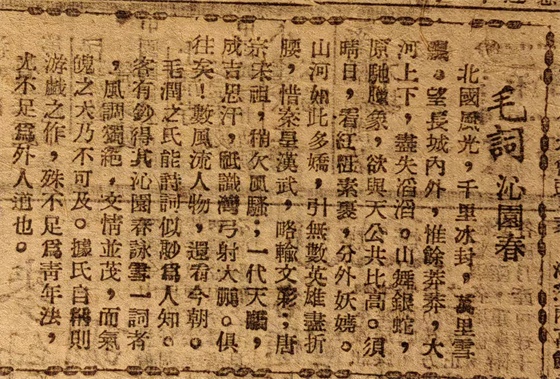 毛詞 沁園春
北國風光，千里冰封，萬里雪
飄。望長城內外，惟餘莽莽，大
河上下，盡失滔滔。山舞銀蛇，
原馳臘象，欲與天公共比高。須
晴日，看紅粧素裹，分外妖嬈。
山河如此多嬌，引無數英雄盡折
腰，惜秦皇漢武，略輸文彩；唐
宗宋祖，稍欠風騷，一代天驕，
成吉思汗，祗識灣弓射大鵰。俱
往矣！數風流人物，還看今朝。
毛潤之氏能詩詞似尠爲人知。
客有鈔得其沁園春詠雪一詞者
，風調獨絕，文情並茂，而氣
魄之大乃不可及。據氏自稱則
游戲之作，殊不足爲青年法，
尤不足爲外人道也。